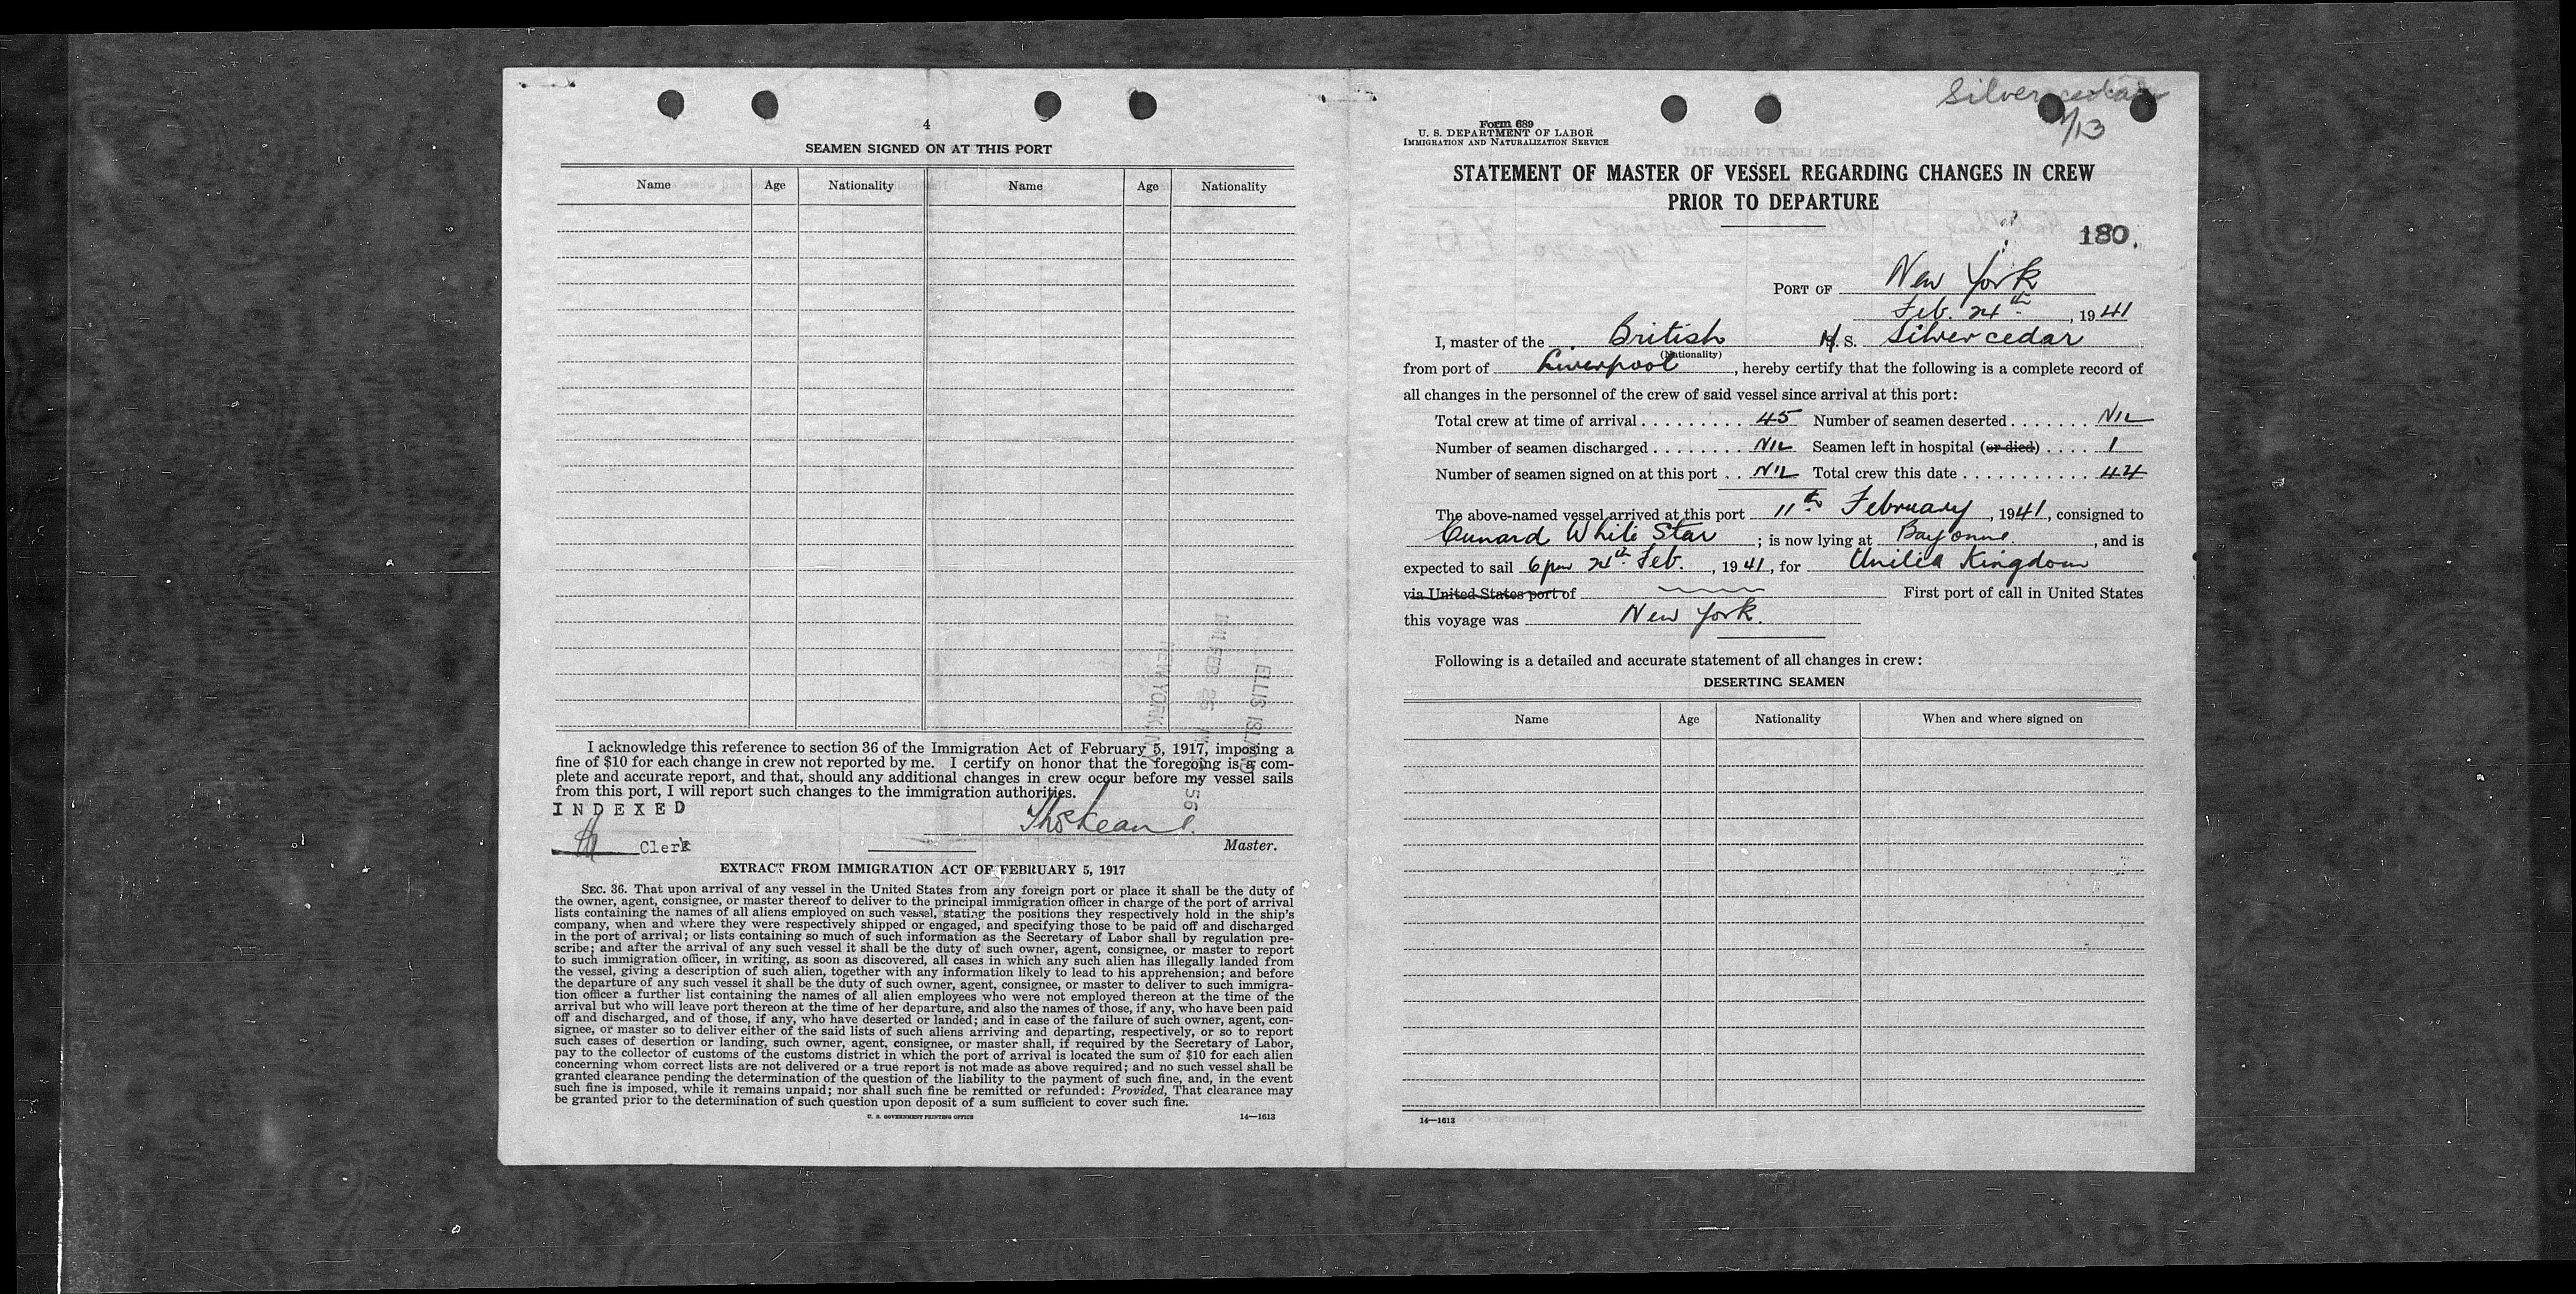 4
SEAMEN SIGNED ON AT THIS PORT
Name Age Nationality Name Age Nationality
I acknowledge this reference to section 36 of the Immigration Act of February 5, 1917, imposing a
fine of $10 for each change in crew not reported by me. I certify on honor that the foregoing is a com-
plete and accurate report, and that, should any additional changes in crew occur before my vessel sails
from this port, I will report such changes to the immigration authorities.
INDEXED
Clerk
Thos Kean
Master.
ELLIS ISLAND
FEB 25
NEW YORK, N.Y.
EXTRACT FROM IMMIGRATION ACT OF FEBRUARY 5, 1917
SEC. 36. That upon arrival of any vessel in the United States from any foreign port or place it shall be the duty of
the owner, agent, consignee, or master thereof to deliver to the principal immigration officer in charge of the port of arrival
lists containing the names of all aliens employed on such vessel, stating the positions they respectively hold in the ship's
company, when and where they were respectively shipped or engaged, and specifying those to be paid off and discharged
in the port of arrival; or lists containing so much of such information as the Secretary of Labor shall by regulation pre-
scribe; and after the arrival of any such vessel it shall be the duty of such owner, agent, consignee, or master to report
to such immigration officer, in writing, as soon as discovered, all cases in which any such alien has illegally landed from
the vessel, giving a description of such alien, together with any information likely to lead to his apprehension; and before
the departure of any such vessel it shall be the duty of such owner, agent, consignee, or master to deliver to such immigra-
tion officer a further list containing the names of all alien employees who were not employed thereon at the time of the
arrival but who will leave port thereon at the time of her departure, and also the names of those, if any, who have been paid
off and discharged, and of those, if any, who have deserted or landed; and in case of the failure of such owner, agent, con-
signee, or master so to deliver either of the said lists of such aliens arriving and departing, respectively, or so to report
such cases of desertion or landing, such owner, agent, consignee, or master shall, if required by the Secretary of Labor,
pay to the collector of customs of the customs district in which the port of arrival is located the sum of $10 for each alien
concerning whom correct lists are not delivered or a true report is not made as above required; and no such vessel shall be
granted clearance pending the determination of the question of the liability to the payment of such fine, and, in the event
such fine is imposed, while it remains unpaid; nor shall such fine be remitted or refunded: Provided, That clearance may
be granted prior to the determination of such question upon deposit of a sum sufficient to cover such fine.
U. S. GOVERNMENT PRINTING OFFICE 14—1613
Silver cedar
1/13
Form 689
U. S. DEPARTMENT OF LABOR
IMMIGRATION AND NATURALIZATION SERVICE
STATEMENT OF MASTER OF VESSEL REGARDING CHANGES IN CREW
PRIOR TO DEPARTURE
180.
PORT OF New York
Feb. 24th, 1941
I, master of the British M. S. Silvercedar
(Nationality)
from port of Liverpool, hereby certify that the following is a complete record of
all changes in the personnel of the crew of said vessel since arrival at this port:
Total crew at time of arrival ......... 45 Number of seamen deserted ....... NIL
Number of seamen discharged ........ NIL Seamen left in hospital (or died) .... 1
Number of seamen signed on at this port .. NIL Total crew this date ........... 44
The above-named vessel arrived at this port 11th February, 1941, consigned to
Cunard White Star; is now lying at Bayonne., and is
expected to sail 6pm 24th Feb., 1941, for United Kingdom
via United States port of First port of call in United States
this voyage was New York.
Following is a detailed and accurate statement of all changes in crew:
DESERTING SEAMEN
Name Age Nationality When and where signed on
14—1613